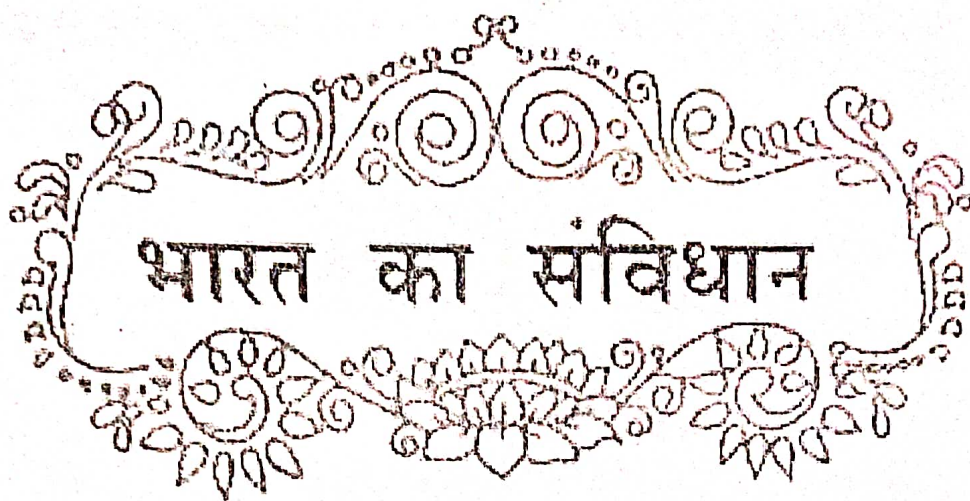 भारत का संविधान